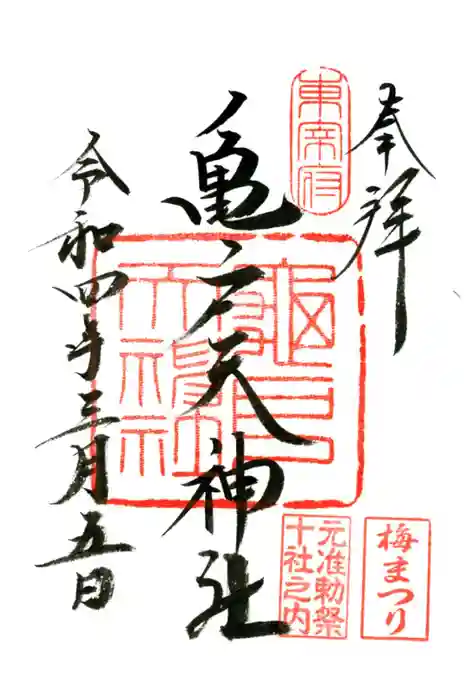 奉拝
東宰府
亀戸天神社
亀戸天神社
令和四年三月五日
元准勅祭
十社之内
梅まつり